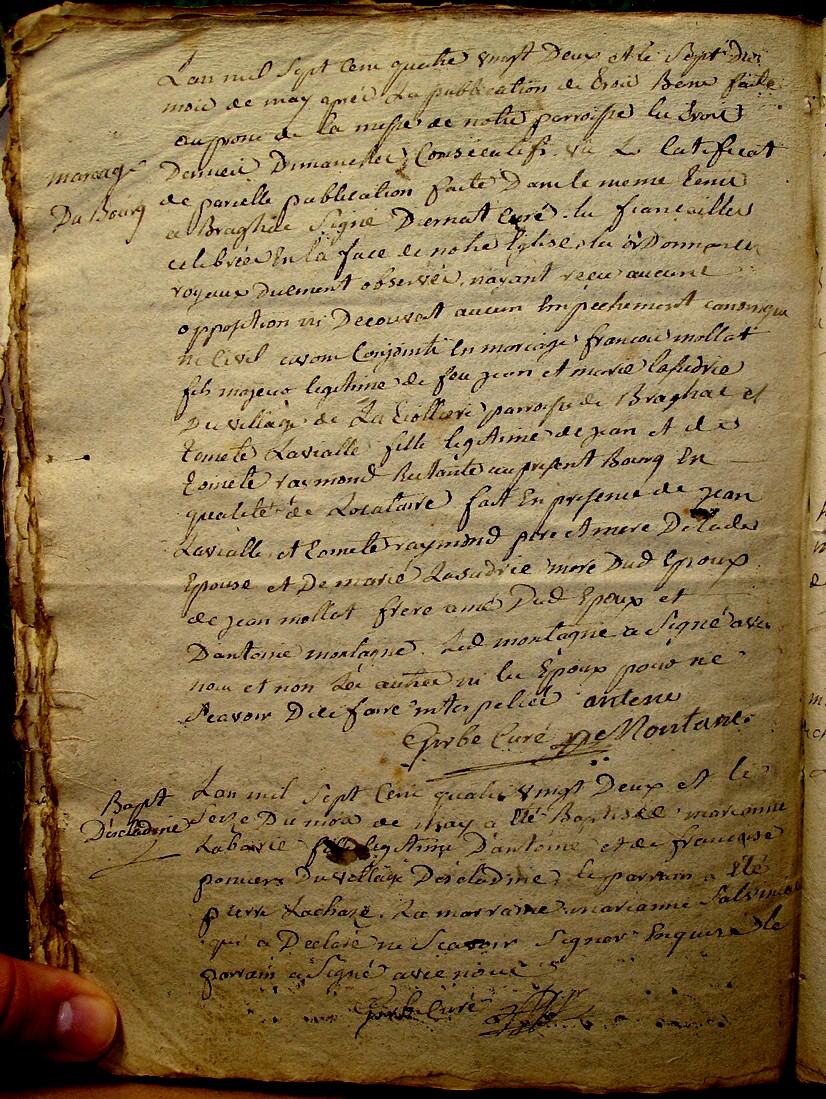 L'an mil Sept Cent quatre vingt Deux et le Sept du
mois de may aprés La publication de trois Bans faite
au prone de la messe de notre parroisse les trois
mariage
Derniers Dimanches Consecutifs vu Le Certificat
Du Bourg
de pareille publication faite Dans le meme tems
a Braghac Signé curé les fiancailles
celebrées En la face de notre Eglise les ordonnances
royaux Duement observées, nayant recu aucune
opposition ni Decouvert aucun Empechement canonique
ni civil avons Conjoint En mariage francois mollat
fils majeur legitime de feu jean et marie lasudrie
Du village de La parroisse de Braghac et
tomete Lavialle fille legitime de jean et de
tomete raymond au present Bourg En
qualité de Locataire fait En presence de jean
Lavialle et tomete raymond pere et mere De lade
Epouse et De marie Lasudrie mere Dud Epoux
de jean mollat frere ainé Dud Epoux et
Dantoine montagne. Led montagne a Signé avec
nous et non Les autres ni les Epoux pour ne
Scavoir De ce faire interpellés antene
Curé De Montane
Bapt
L'an mil Sept Cent quatre vingt Deux et le
Descladine
Seize Du mois de may a été Baptisée marianne
Labarie fille legitime D'antoine et de francoise
Du village Descladine, le parrain a été
pierre Lachaze La marraine marianne
qui a Declaré ne Scavoir Signer Enquise le
parrain a Signé avec nous
Curé